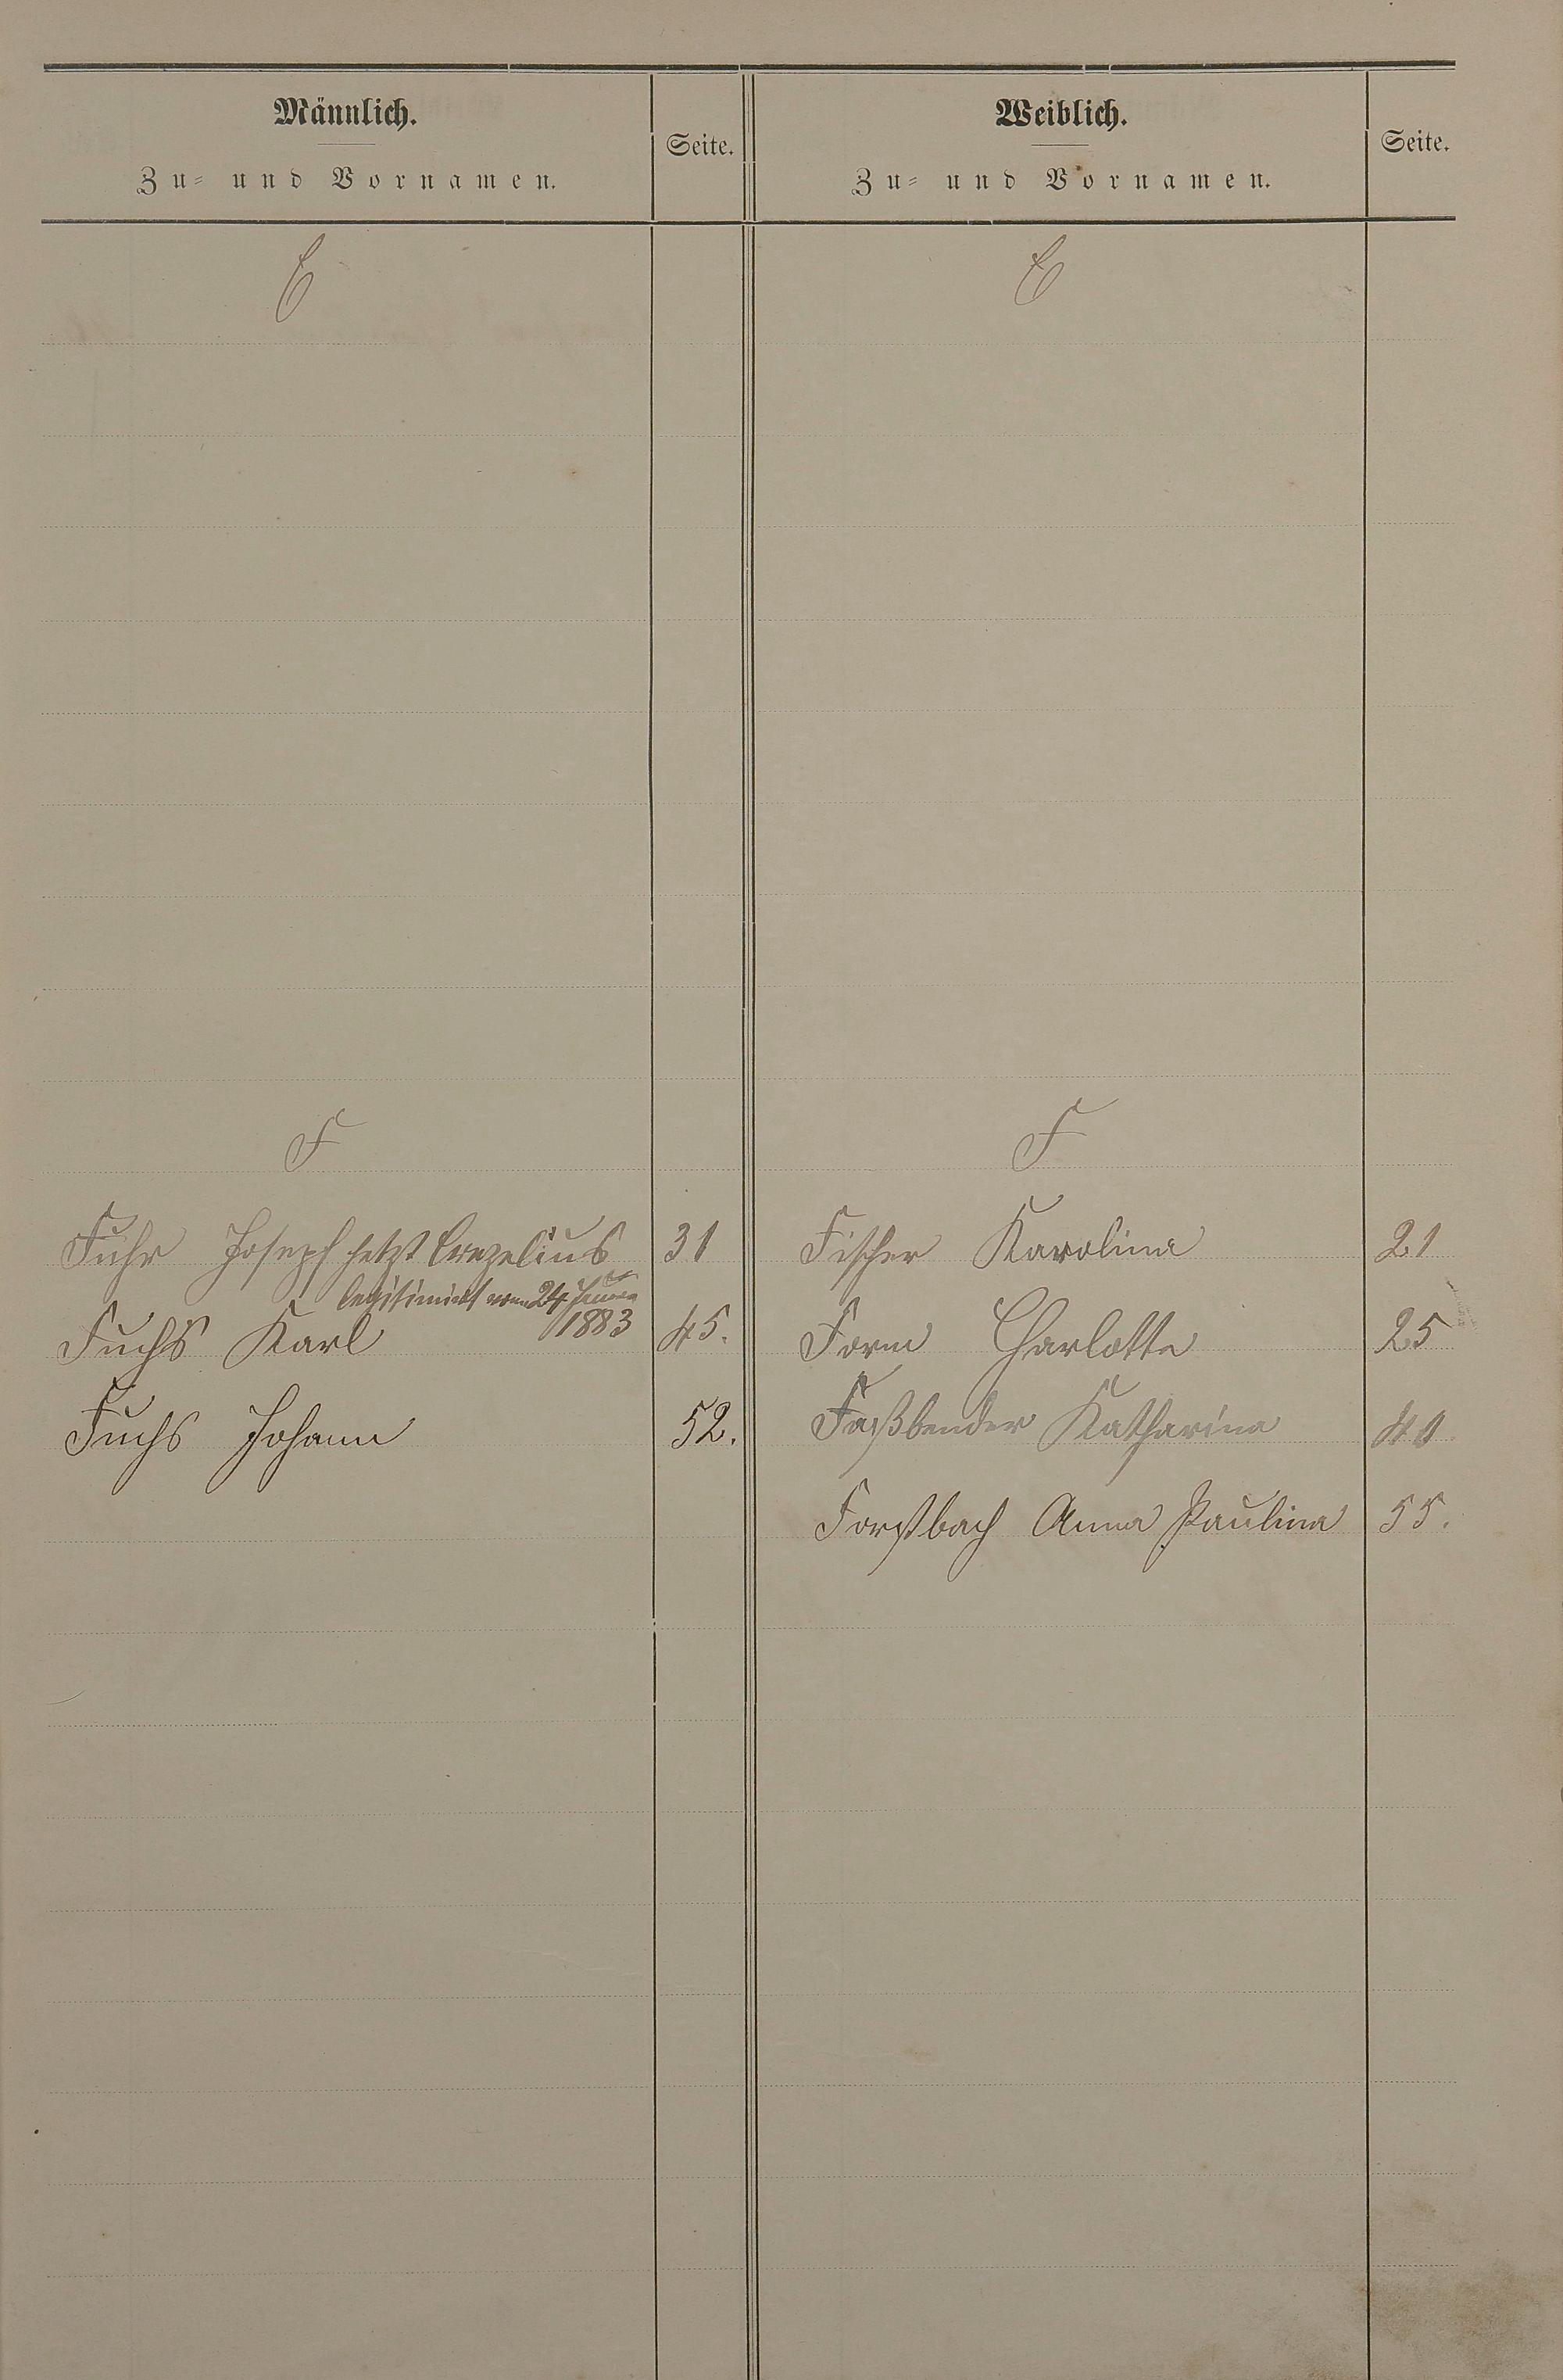 Männlich.
Zu- und Vornamen.
Seite.
Weiblich.
Zu- und Vornamen.
Seite.
E
E
F
F
Fuhr Joseph jetzt Crezelius 31
legitimiert vom 24 Januar
1883
Fuchs Karl 45.
Fuchs Johann 52.
Fischer Karolina 21
Form Charlotte 25
Faßbender Katharina 40
Forstbach Anna Paulina 55.